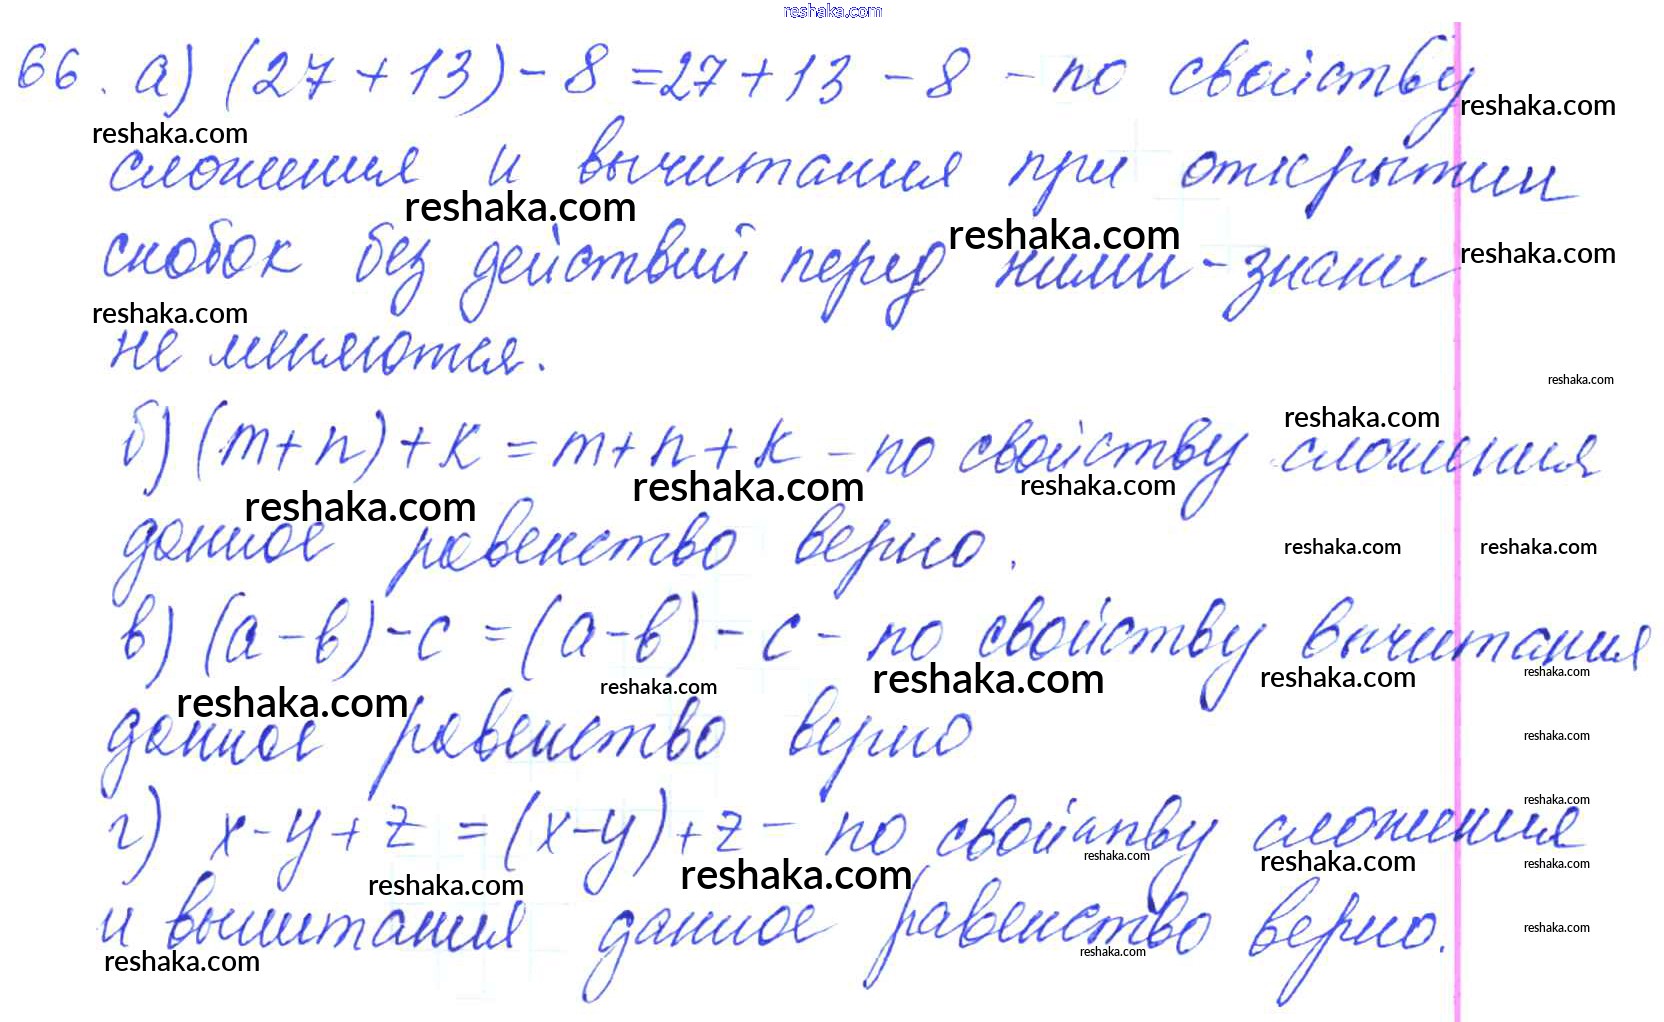 reshaka.com
66. а) (27 + 13) - 8 = 27 + 13 - 8 - по свойству
reshaka.com
reshaka.com
сложения и вычитания при открытии
reshaka.com
reshaka.com
reshaka.com
скобок без действий перед ними - знаки
reshaka.com
не меняются.
reshaka.com
reshaka.com
б) (m + n) + k = m + n + k - по свойству сложения
reshaka.com reshaka.com reshaka.com
данное равенство верно.
reshaka.com reshaka.com
в) (а - в) - с = (а - в) - с - по свойству вычитания
reshaka.com reshaka.com reshaka.com reshaka.com reshaka.com
данное равенство верно
reshaka.com
reshaka.com
г) x - y + z = (x - y) + z - по свойству сложения
reshaka.com reshaka.com reshaka.com reshaka.com reshaka.com
и вычитания данное равенство верно.
reshaka.com
reshaka.com reshaka.com